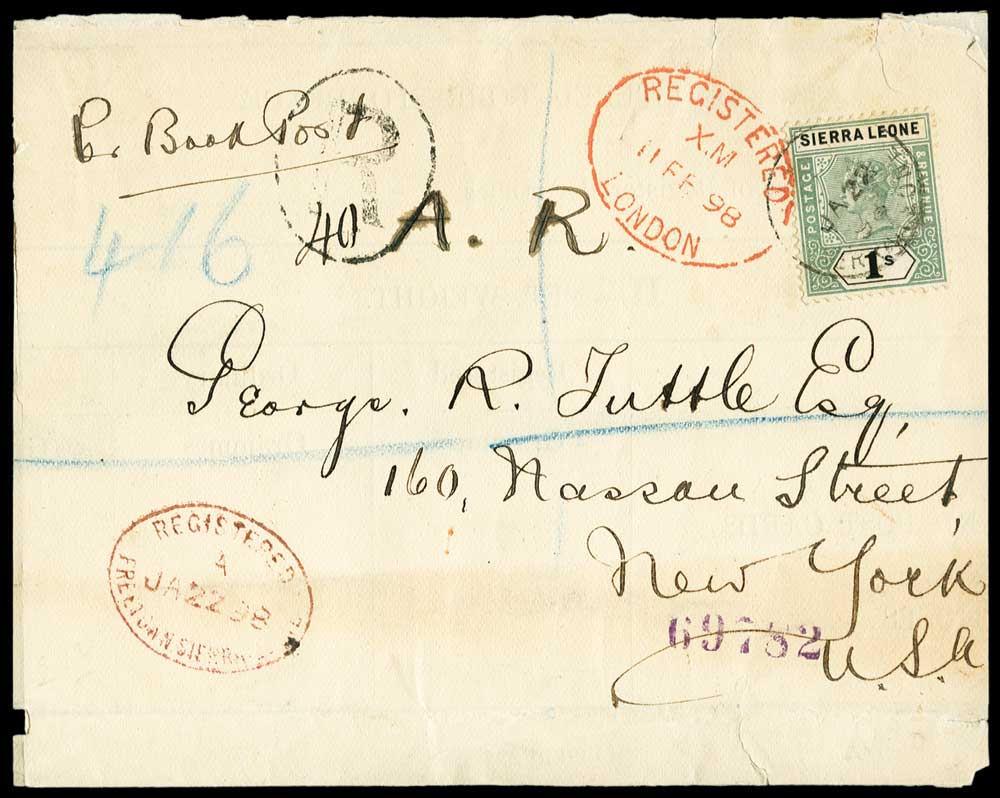 Pr Book Post
R
40 A. R.
416
REGISTERED
X.M
11 FE 98
LONDON
SIERRA LEONE
POSTAGE
& REVENUE
JA 22
1s
George. R. Tuttle Esq,
160, Nassau Street,
New York
U.S.A
69782
REGISTERED
A
JA 22 98
FREETOWN SIERRA